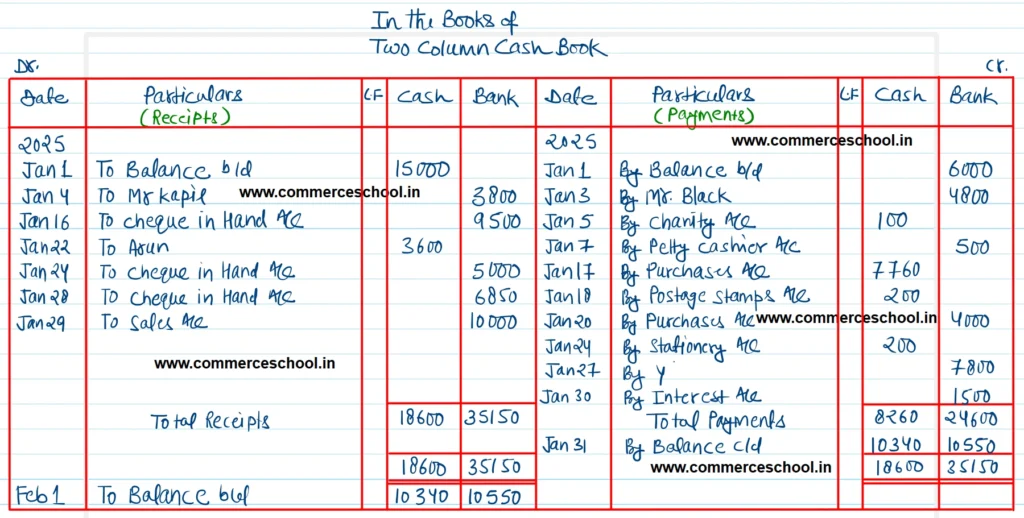 In the Books of
Two Column Cash Book
Dr. Cr.
Date Particulars LF Cash Bank Date Particulars LF Cash Bank
(Receipts) (Payments)
2025 2025 www.commerceschool.in
Jan 1 To Balance b/d 15000 Jan 1 By Balance b/d 6000
Jan 4 To Mr Kapil www.commerceschool.in 3800 Jan 3 By Mr. Black 4800
Jan 16 To cheque in Hand A/c 9500 Jan 5 By Charity A/c 100
Jan 22 To Arun 3600 Jan 7 By Petty cashier A/c 500
Jan 24 To cheque in Hand A/c 5000 Jan 17 By Purchases A/c 7760
Jan 28 To cheque in Hand A/c 6850 Jan 18 By Postage stamps A/c 200
Jan 29 To Sales A/c 10000 Jan 20 By Purchases A/c www.commerceschool.in 4000
Jan 24 By Stationery A/c 200
www.commerceschool.in Jan 27 By Y 7800
Jan 30 By Interest A/c 1500
Total Receipts 18600 35150 Total Payments 8260 24600
Jan 31 By Balance c/d 10340 10550
18600 35150 www.commerceschool.in 18600 35150
Feb 1 To Balance b/d 10340 10550